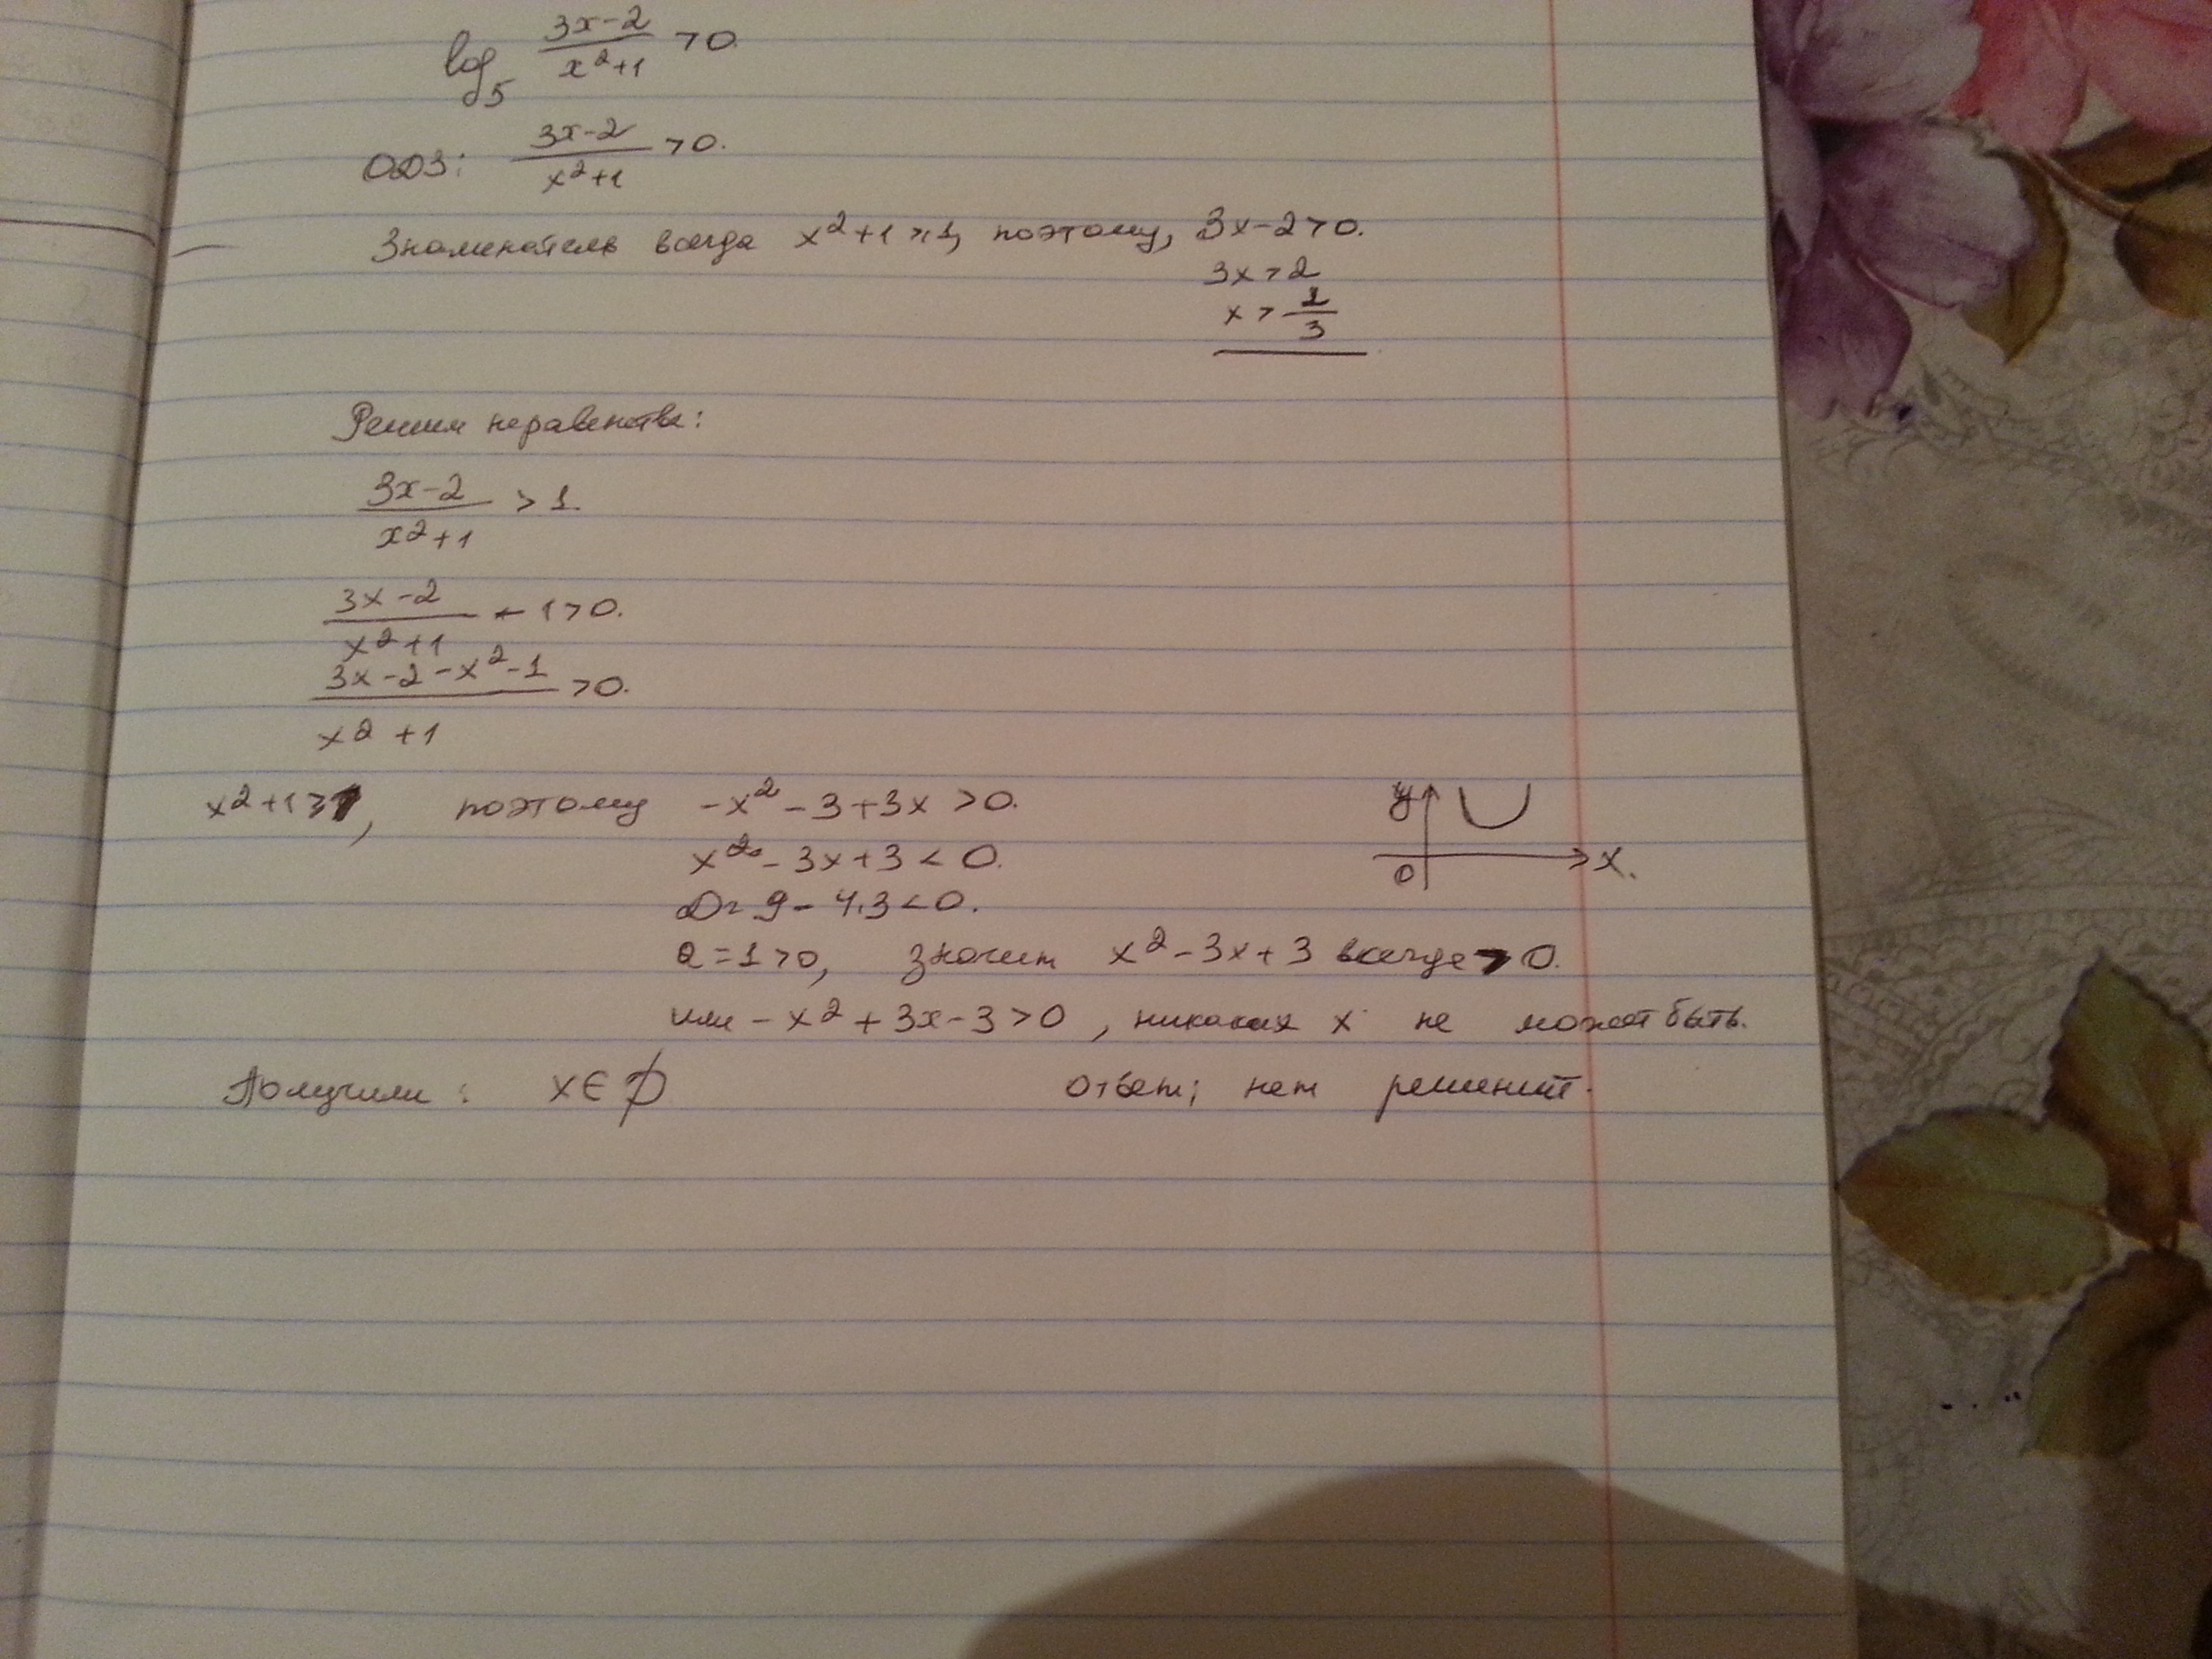 log₅ (3x-2)/(x²+1) >0.
ОДЗ: (3x-2)/(x²+1) >0.
Знаменатель всегда x²+1 ≥1, поэтому, 3x-2>0.
3x>2
x > 2/3
Решим неравенство:
(3x-2)/(x²+1) > 1.
(3x-2)/(x²+1) - 1>0.
(3x-2-x²-1)/(x²+1) >0.
x²+1≥1, поэтому -x²-3+3x >0.
y
x²-3x+3< 0.
0 x.
D= 9-4·3<0.
a=1>0, значит x²-3x+3 всегда >0.
или -x²+3x-3>0, никаких x не может быть.
Получили: x∈∅ Ответ: нет решений.